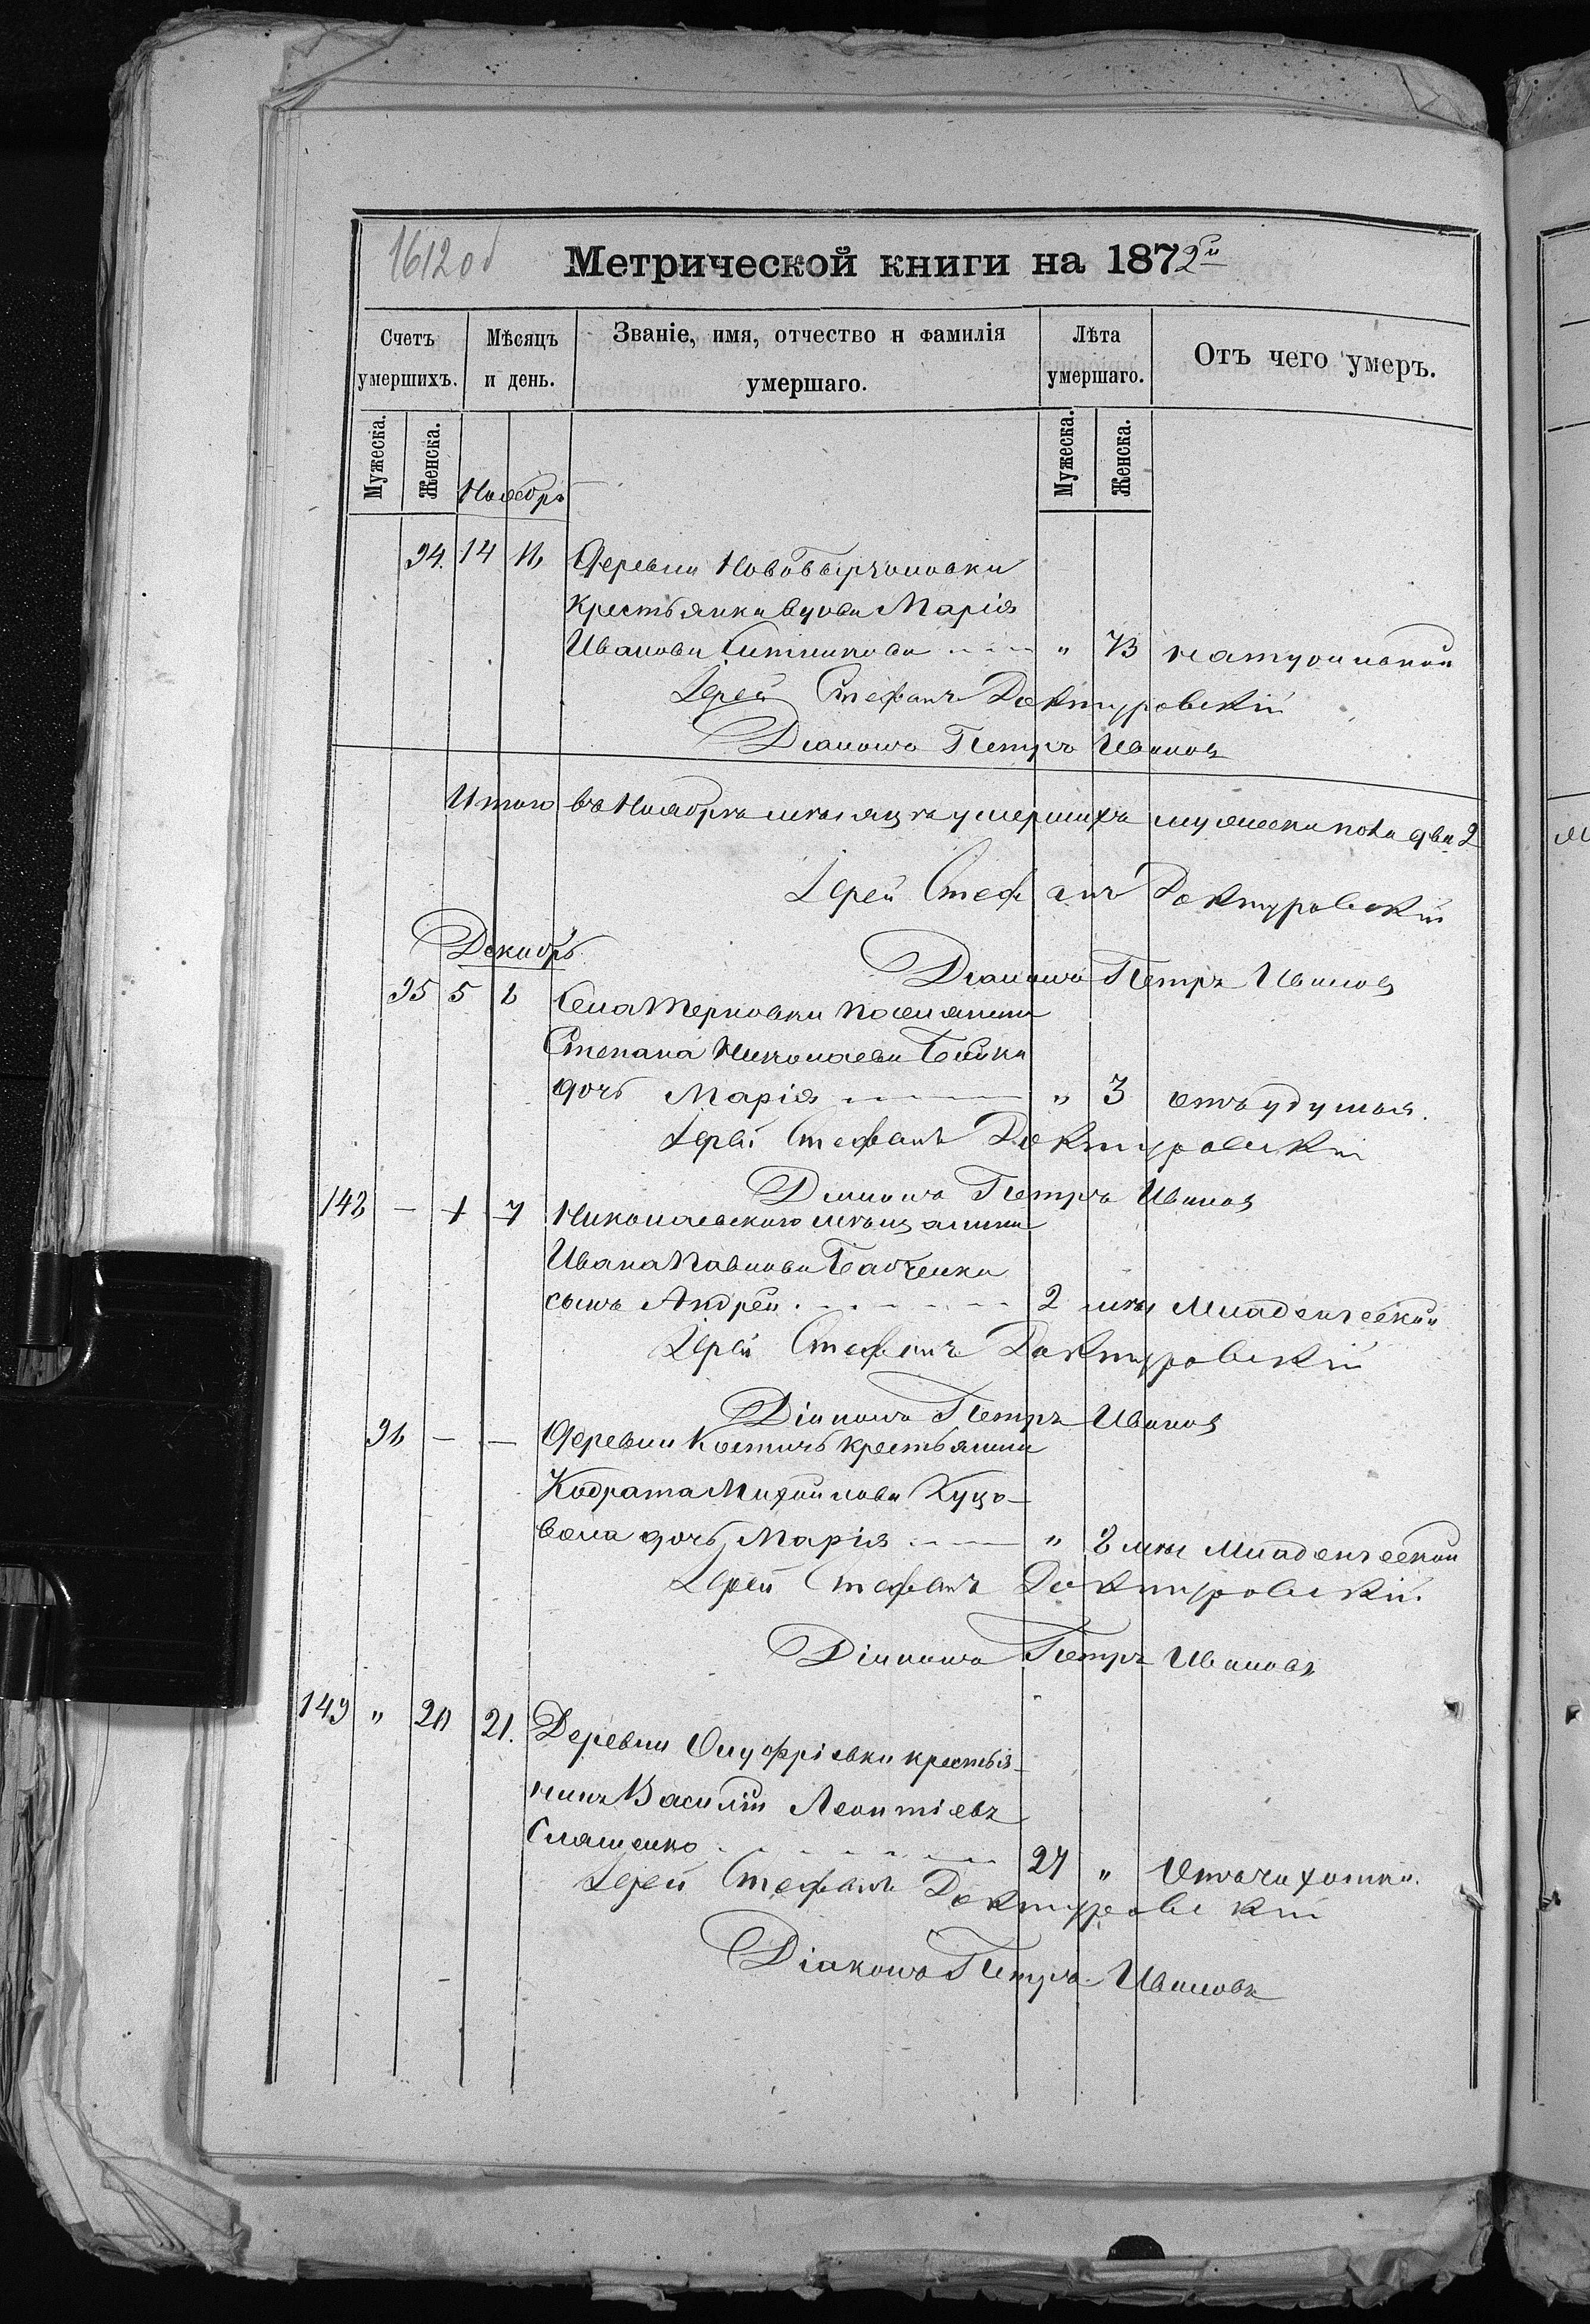 1612 об
Метрической книги на 1872й
Счетъ умершихъ.
Мѣсяцъ и день.
Званіе, имя, отчество и фамилія умершаго.
Лѣта умершаго.
Отъ чего умеръ.
Мужеска.
Женска.
Мужеска.
Женска.
Ноябрь
94. 14 16 Деревни
крестьянка вдова Марія
Иванова Ситникова " 73 натуральной
Іерей Стефанъ Доктуровскій
Діаконъ Петръ Ивановъ
Итого въ Ноябрѣ мѣсяцѣ умершихъ мужеска пола два 2
Іерей Стефанъ Доктуровскій
Декабрь
Діаконъ Петръ Ивановъ
95 5 6 Села Терновки поселянина
Степана Николаева Бойка
дочь Марія " 3 отъ удушья.
Іерей Стефанъ Доктуровскій
Діаконъ Петръ Ивановъ
148 — 7 Николаевскаго мѣщанина
Ивана Павлова Бабченка
сынъ Андрей 2 мѣс Младенческой
Іерей Стефанъ Доктуровскій
Діаконъ Петръ Ивановъ
96 — — Деревни Костичъ крестьянина
Кодрата Михайлова Куцо-
вола дочь Марія " 8 мѣс Младенческой
Іерей Стефанъ Доктуровскій.
Діаконъ Петръ Ивановъ
149 " 20 21. Деревни Онуфріевки крестья-
нинъ Василій Леонтіевъ
27 " Отъ чахотки.
Іерей Стефанъ Доктуровскій
Діаконъ Петръ Ивановъ